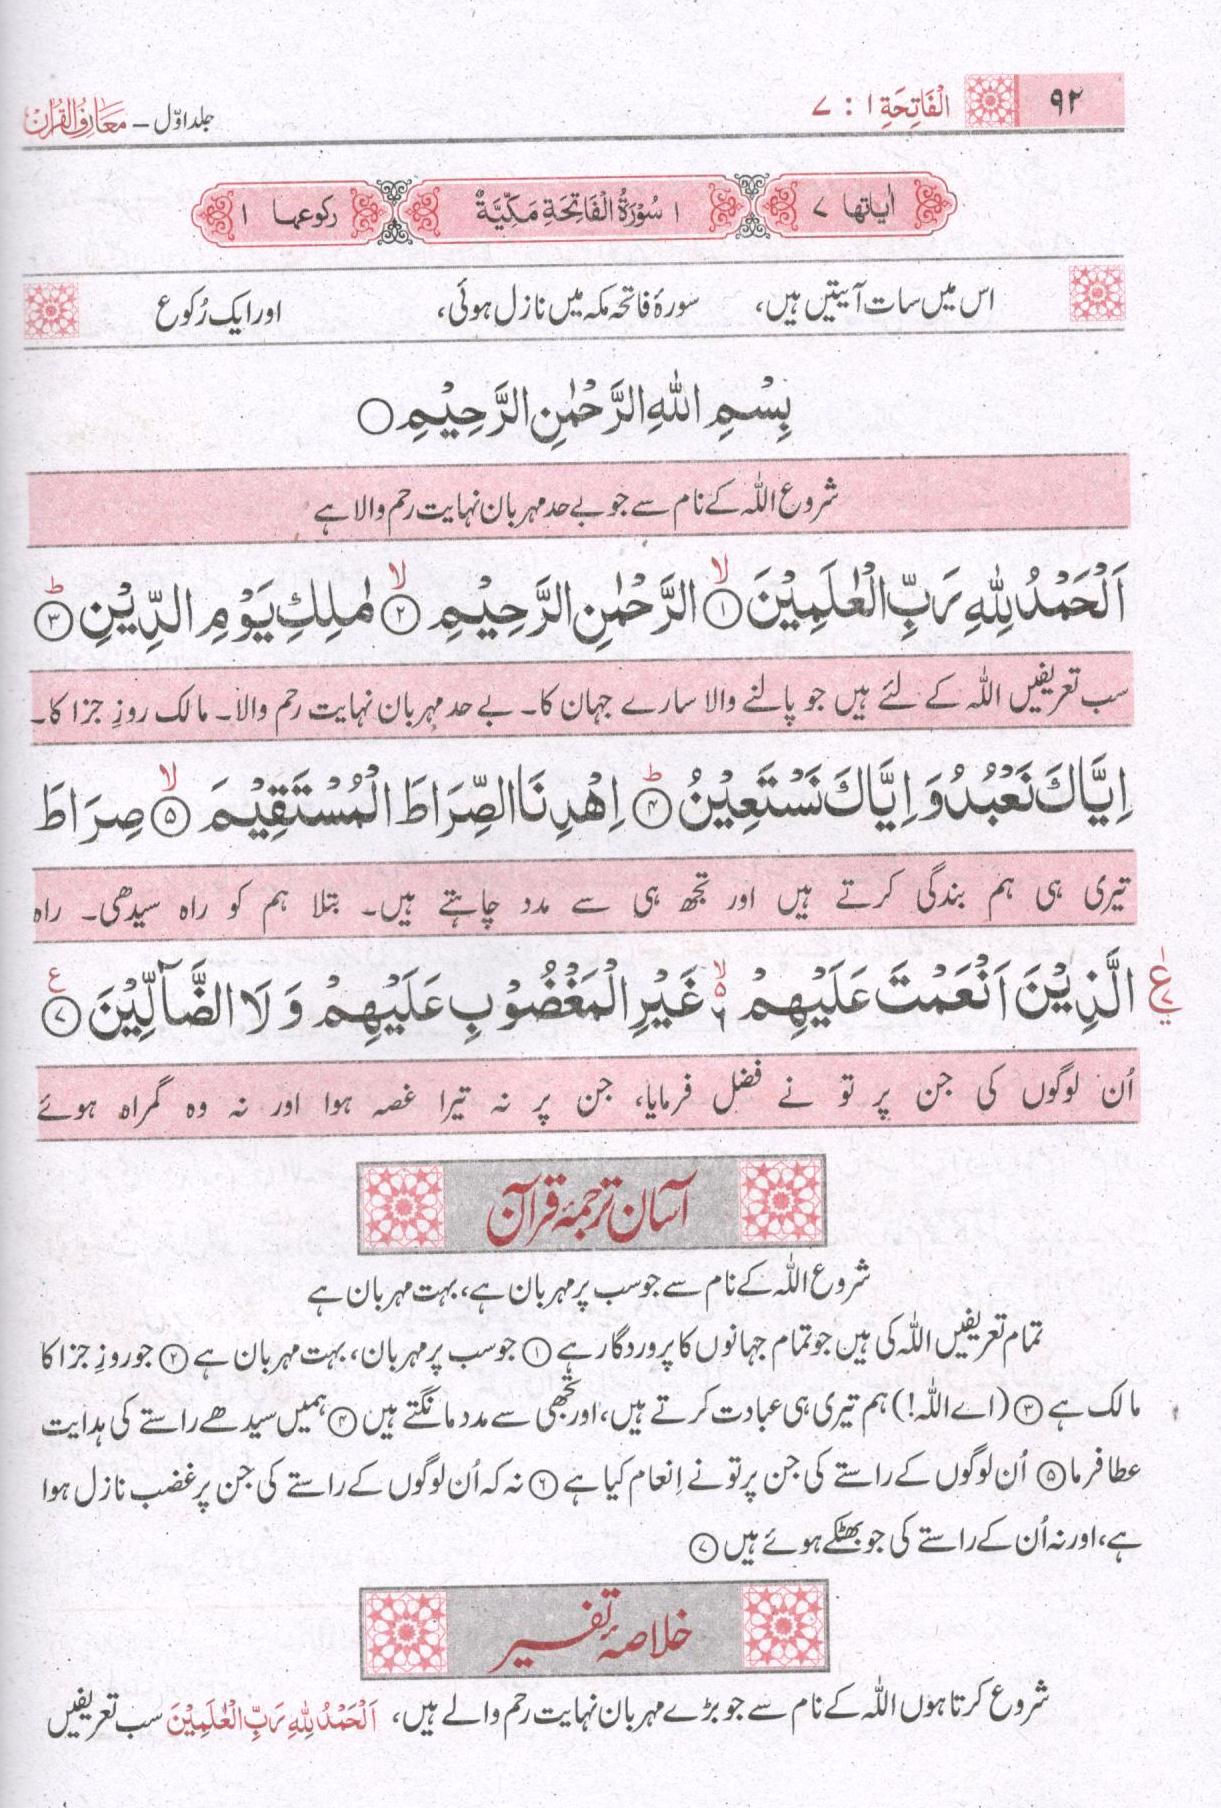 ٩٢ اَلْفَاتِحَةِ ١ : ٧ جلد اوّل ـ معارف القرآن
اٰیاتها ٧ ١ سُوْرَةُ الْفَاتِحَةِ مَکِّیَّةٌ رکوعها ١
اس میں سات آیتیں ہیں، سورۂ فاتحہ مکہ میں نازل ہوئی، اور ایک رُکوع
بِسْمِ اللهِ الرَّحْمٰنِ الرَّحِيْمِ ○
شروع اللہ کے نام سے جو بے حد مہربان نہایت رحم والا ہے
اَلْحَمْدُ لِلّٰهِ رَبِّ الْعٰلَمِيْنَ ۙ﴿۱﴾ الرَّحْمٰنِ الرَّحِيْمِ ۙ﴿۲﴾ مٰلِكِ يَوْمِ الدِّيْنِ ؕ﴿۳﴾
سب تعریفیں اللہ کے لئے ہیں جو پالنے والا سارے جہان کا۔ بے حد مہربان نہایت رحم والا۔ مالک روزِ جزا کا۔
اِيَّاكَ نَعْبُدُ وَ اِيَّاكَ نَسْتَعِيْنُ ؕ﴿۴﴾ اِهْدِنَا الصِّرَاطَ الْمُسْتَقِيْمَ ۙ﴿۵﴾ صِرَاطَ
تیری ہی ہم بندگی کرتے ہیں اور تجھ ہی سے مدد چاہتے ہیں۔ بتلا ہم کو راہ سیدھی۔ راہ
الَّذِيْنَ اَنْعَمْتَ عَلَيْهِمْ ۙ۬ۦ غَيْرِ الْمَغْضُوْبِ عَلَيْهِمْ وَ لَا الضَّآلِّيْنَ ﴿۷﴾ ع
اُن لوگوں کی جن پر تو نے فضل فرمایا، جن پر نہ تیرا غصہ ہوا اور نہ وہ گمراہ ہوئے
آسان ترجمۂ قرآن
شروع اللہ کے نام سے جو سب پر مہربان ہے، بہت مہربان ہے
تمام تعریفیں اللہ کی ہیں جو تمام جہانوں کا پروردگار ہے ﴿۱﴾ جو سب پر مہربان، بہت مہربان ہے ﴿۲﴾ جو روزِ جزا کا
مالک ہے ﴿۳﴾ (اے اللہ!) ہم تیری ہی عبادت کرتے ہیں، اور تجھی سے مدد مانگتے ہیں ﴿۴﴾ ہمیں سیدھے راستے کی ہدایت
عطا فرما ﴿۵﴾ اُن لوگوں کے راستے کی جن پر تو نے اِنعام کیا ہے ﴿۶﴾ نہ کہ اُن لوگوں کے راستے کی جن پر غضب نازل ہوا
ہے، اور نہ اُن کے راستے کی جو بھٹکے ہوئے ہیں ﴿۷﴾
خلاصۂ تفسیر
شروع کرتا ہوں اللہ کے نام سے جو بڑے مہربان نہایت رحم والے ہیں، اَلْحَمْدُ لِلّٰهِ رَبِّ الْعٰلَمِيْنَ سب تعریفیں